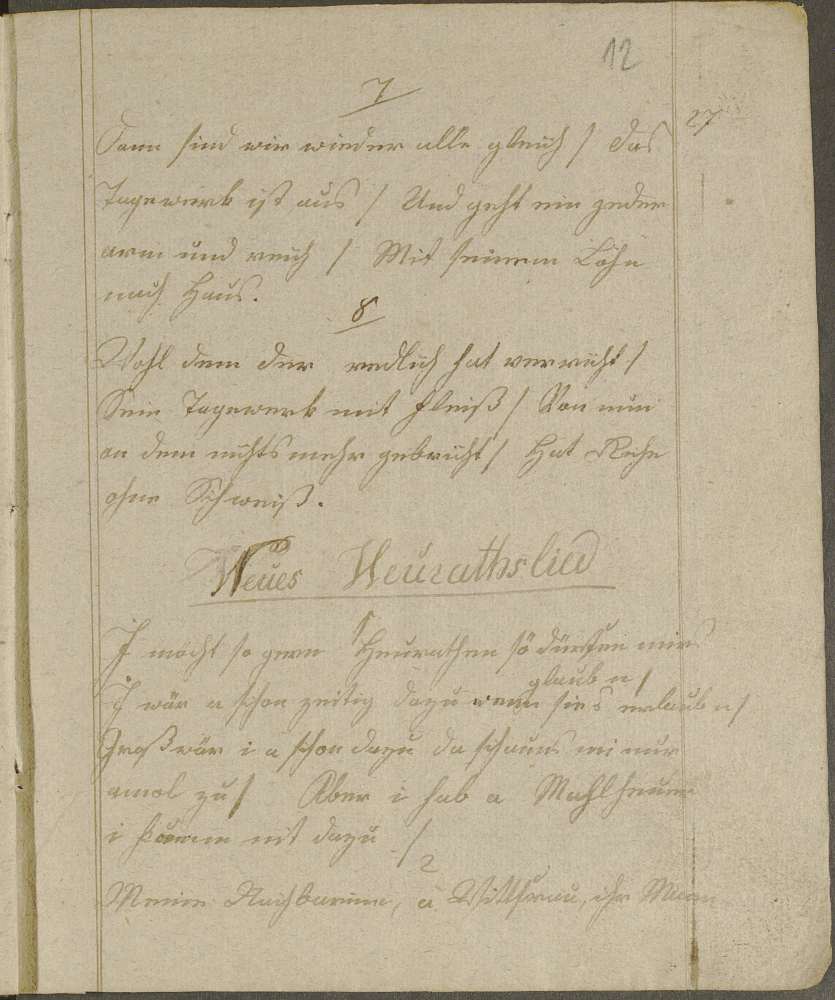 12
7
27
Dann sind wir wieder alle gleich / das
Tagewerk ist aus / Und geht ein jeder
arm und reich / Mit seinem Lohn
nach Haus.
8
Wohl dem der redlich hat verricht /
Sein Tagewerk mit Fleiß / Von nun
an dem nichts mehr gebricht / Hat Ruhe
ohne Schweiß.
Neues Heurathslied
I möcht so gern Heurathen sö dürfen mirs
glaub n /
I wär a schon zeitig dazu wenn sies erlaub n /
Groß wär i a schon dazu da schauns mi nur
amol zu / Aber i hab a
i kumm nit dazu /
2
Meine Nachbarinn, a Wittfrau, ihr Mann